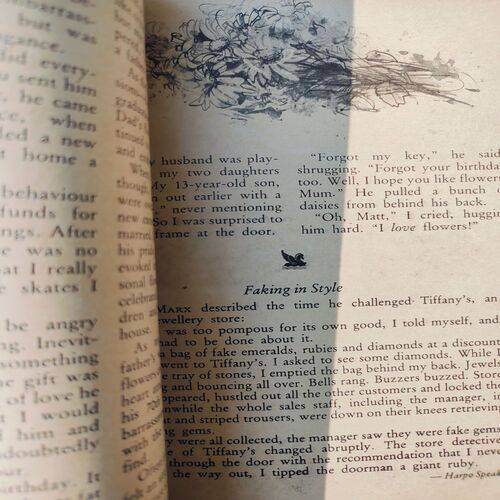 mbarrass-
but was
gance.
did every-
u sent him
, he came
ce, when
lled a new
at home a
behaviour
funds for
ngs. After
re was no
at I really
e skates I
be angry
ng. Inevit-
something
e gift was
of love he
I would
him and
doubtedly
but it
birthday. It
a fath
As
graduat
Dad's
tinued
and
When
though
were
new
married
his
evoked
sonal
celebra
dren and
house.
As
father's
flowers
heart
his 70
barrass
with
find
husband was play-
my two daughters
My 13-year-old son,
out earlier with a
," never mentioning
So I was surprised to
frame at the door.
"Forgot my key," he said
shrugging. "Forgot your birthday
too. Well, I hope you like flowers
Mum." He pulled a bunch
daisies from behind his back.
"Oh, Matt," I cried, huggin
him hard. "I love flowers!"
Faking in Style
Marx described the time he challenged Tiffany's, an
ewellery store:
was too pompous for its own good, I told myself, and
had to be done about it.
a bag of fake emeralds, rubies and diamonds at a discount
went to Tiffany's. I asked to see some diamonds. While I
e tray of stones, I emptied the bag behind my back. Jewels
g and bouncing all over. Bells rang. Buzzers buzzed. Store
appeared, hustled out all the other customers and locked the
nwhile the whole sales staff, including the manager, in
t and striped trousers, were down on their knees retrieving
ng gems.
ey were all collected, the manager saw they were fake gems
e of Tiffany's changed abruptly. The store detective
through the door with the recommendation that I never
the way out, I tipped the doorman a giant ruby.
— Harpo Speak